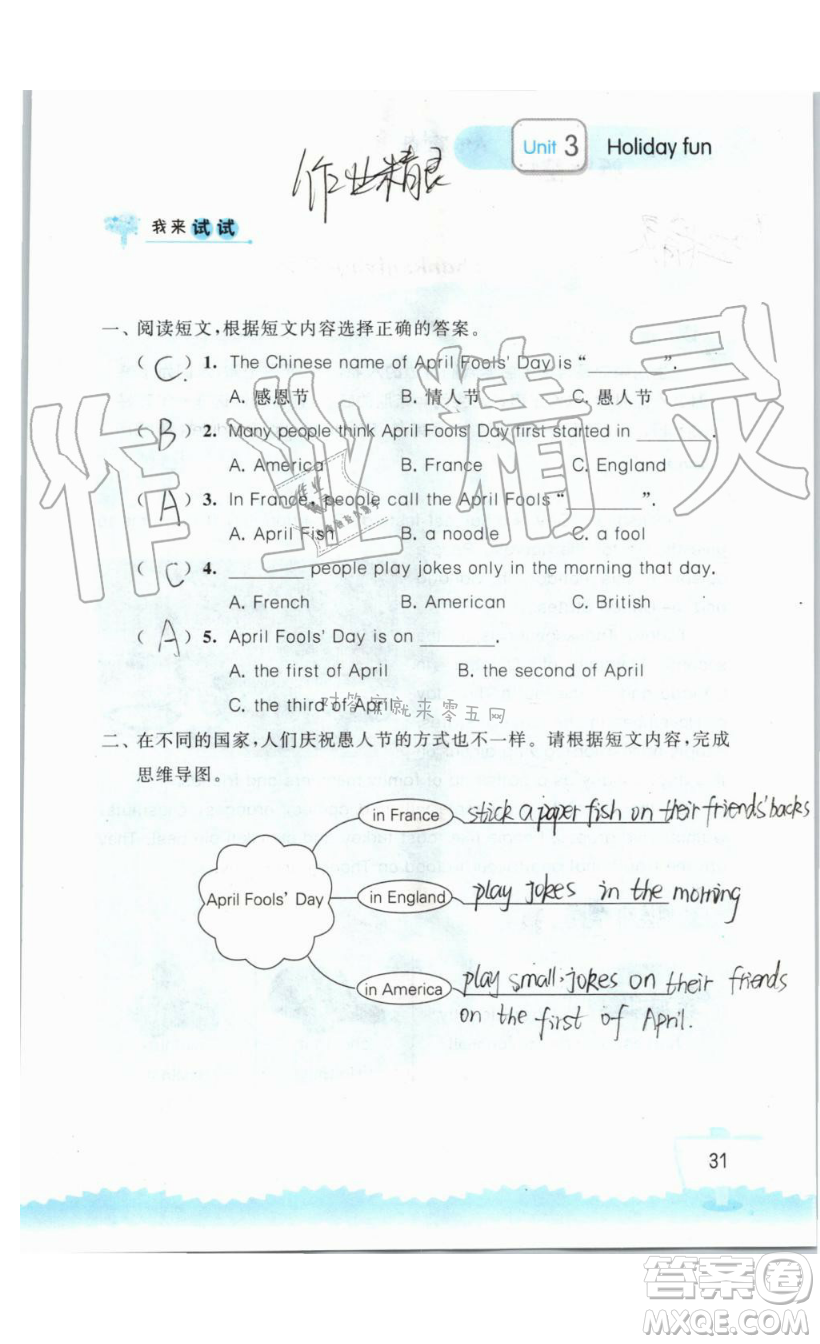 Unit 3 Holiday fun
作业精灵
我来试试
一、阅读短文,根据短文内容选择正确的答案。
( C ) 1. The Chinese name of April Fools' Day is “________”.
A. 感恩节 B. 情人节 C. 愚人节
( B ) 2. Many people think April Fools' Day first started in ________.
A. America B. France C. England
( A ) 3. In France, people call the April Fools “________”.
A. April Fish B. a noodle C. a fool
( C ) 4. ________ people play jokes only in the morning that day.
A. French B. American C. British
( A ) 5. April Fools' Day is on ________.
A. the first of April B. the second of April
C. the third of April
对答案就来零五网
二、在不同的国家,人们庆祝愚人节的方式也不一样。请根据短文内容,完成
思维导图。
in France stick a paper fish on their friends' backs
April Fools' Day in England play jokes in the morning
in America play small jokes on their friends
on the first of April.
31
作业精灵
答案卷
MXQE.COM